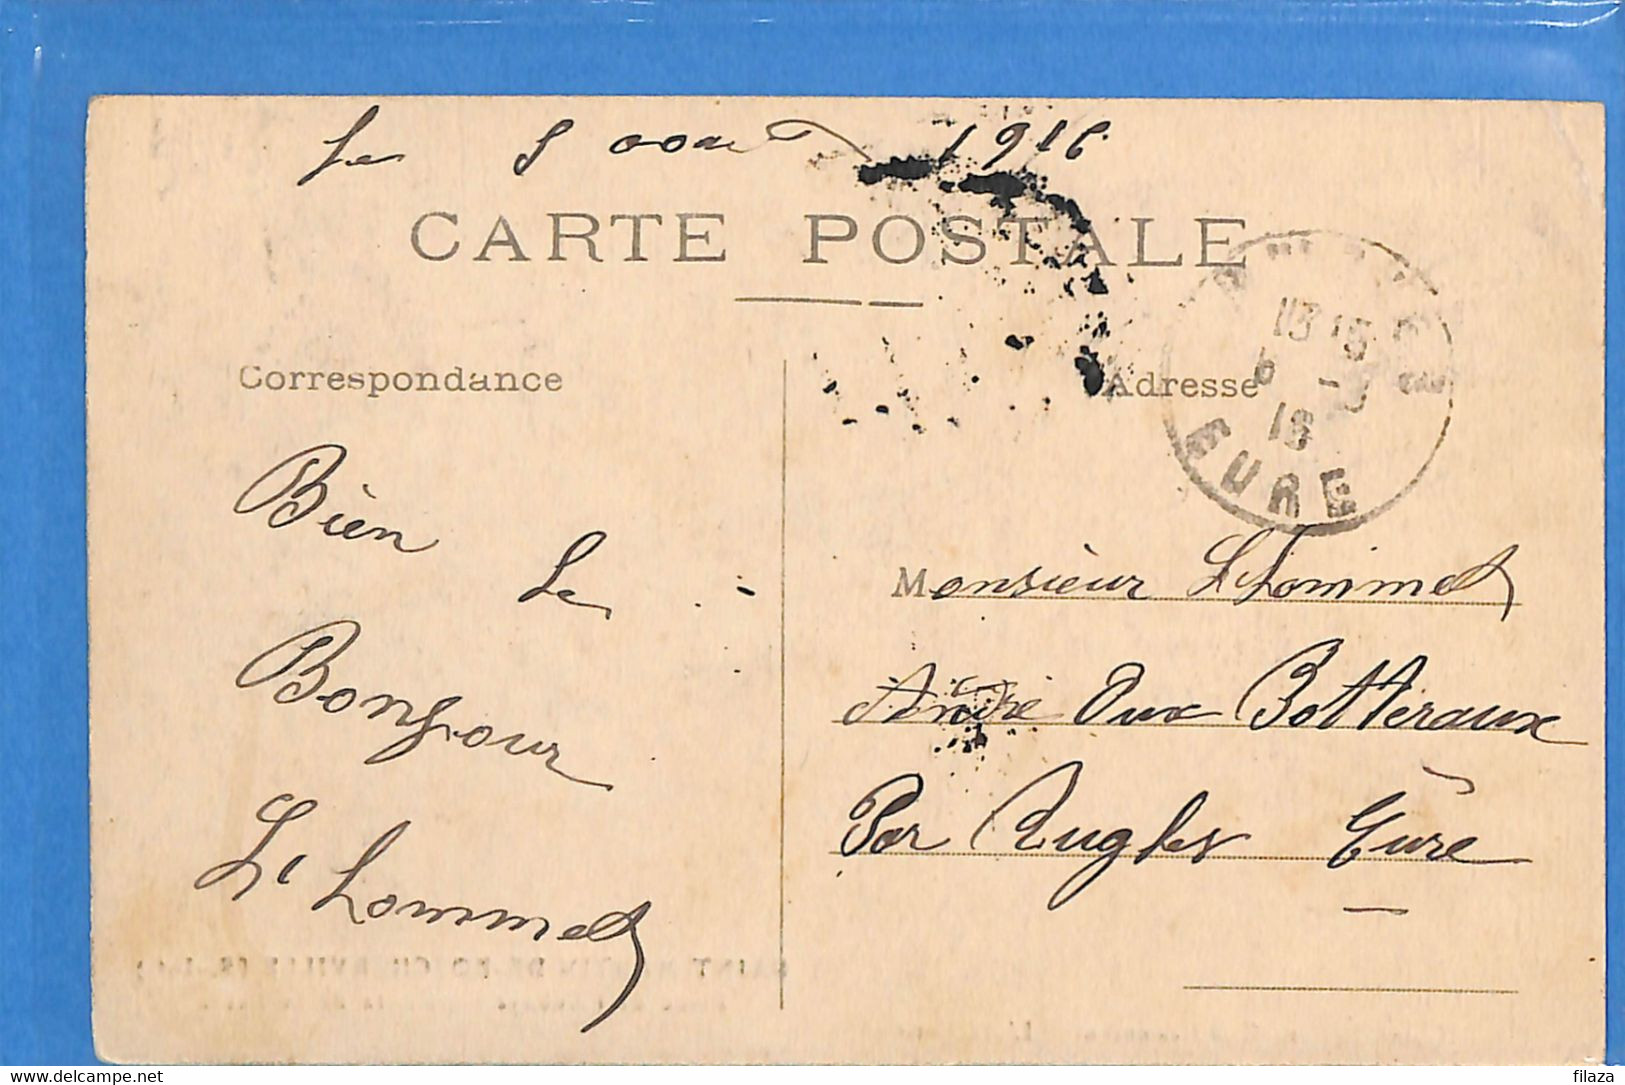 Le 5 aout 1916
CARTE POSTALE
Correspondance
Adresse
13 15
6
16
EURE
Bien
Le
Bonjour
L'hommet
Monsieur L'hommet
André Aux Botteraux
Par Rugles Eure
SAINT MARTIN DE BOSCHERVILLE (S.-I.)
delcampe.net
filaza